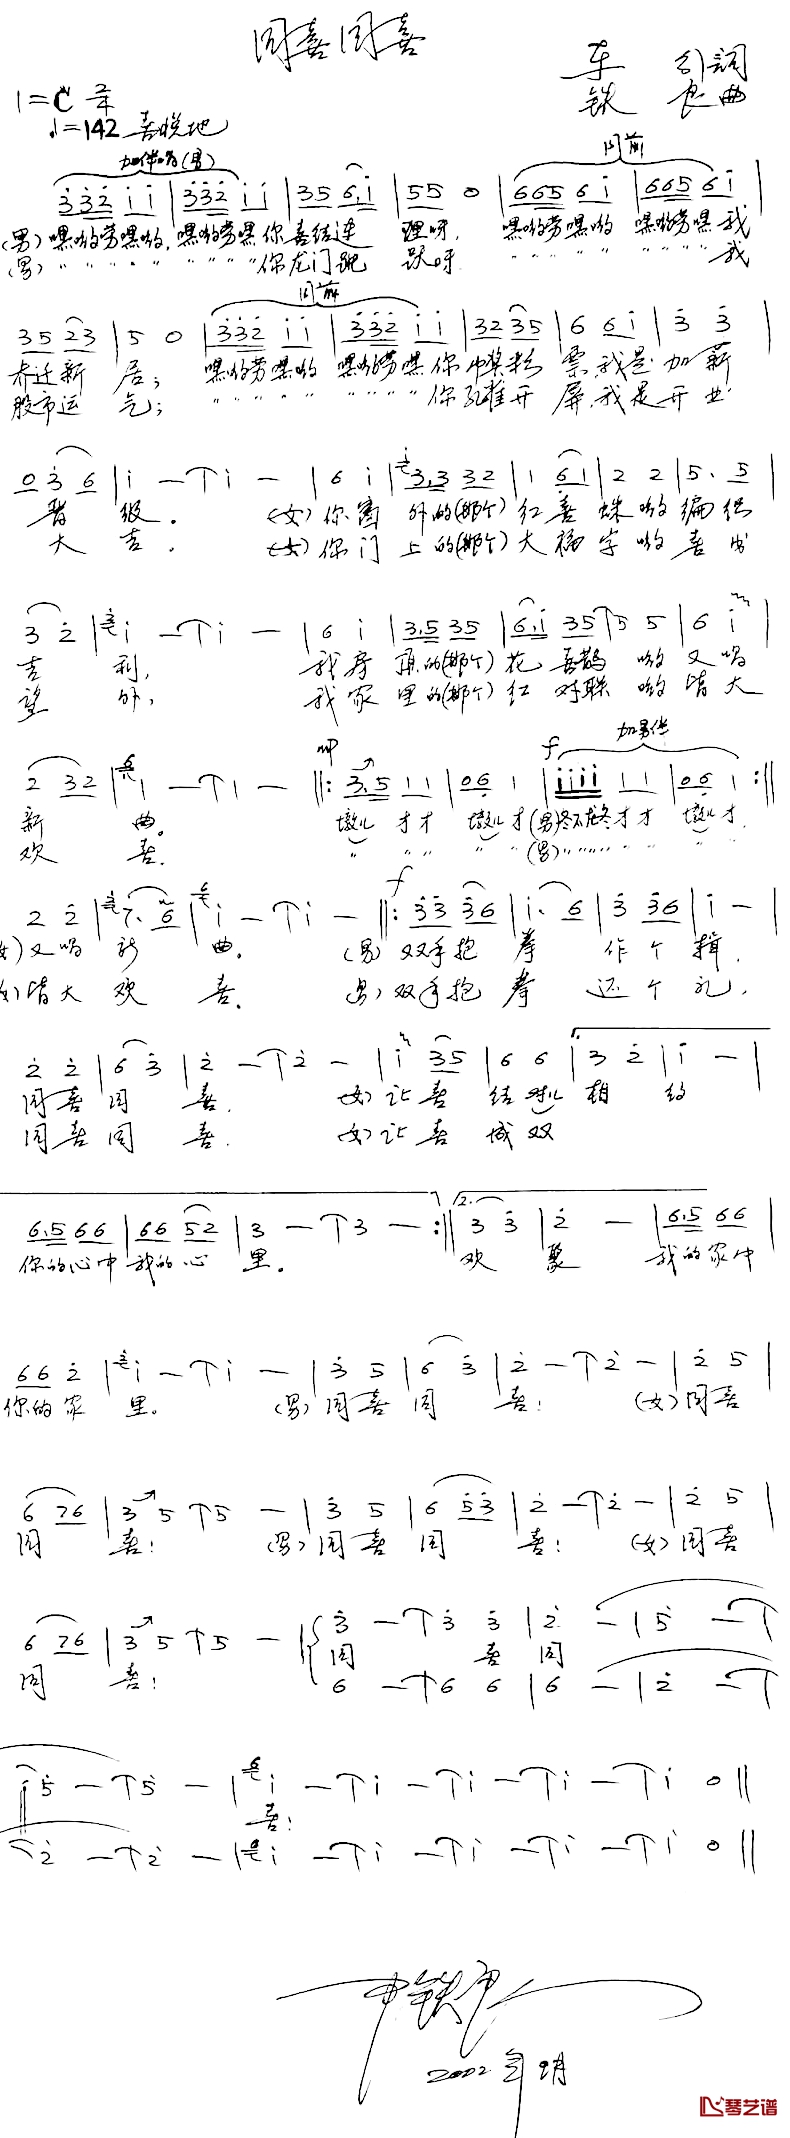 同喜同喜
车行詞
铁良曲
1=C 2/4
♩=142 喜悦地
加伴唱(男)
同前
3 3 2 i i | 3 3 2 i i | 3 5 6. i | 5 5 0 | 6 6 5 6 i | 6 6 5 6 i |
(男) 嘿哟劳嘿哟, 嘿哟劳嘿你喜结连 理呀, 嘿哟劳嘿哟 嘿哟劳嘿我
(男) 〃 〃 〃 〃 〃 你龙门跳 跃呀 〃 〃 〃 〃 我
同前
3 5 2 3 | 5 0 | 3 3 2 i i | 3 3 2 i i | 3 2 3 5 | 6 6 i | 3 3 |
乔迁新 居; 嘿哟劳嘿哟 嘿哟劳嘿你中奖彩 票,我是加薪
股市运 气; 〃 〃 〃 〃 你孔雀开 屏,我是开业
0 3 6 | i - | i - | 6 i | 3. 3 3 2 | 1 6 1 | 2 2 | 5. 5 |
晋 级. (女)你窗 外的(那个)红喜 蛛哟编织
大 吉. (女)你门 上的(那个)大福 字哟喜出
3 2 | i - | i - | 6 i | 3. 5 3 5 | 6. i 3 5 | 5 5 | 6 i |
吉 利, 我房 顶的(那个)花 喜鹊 哟 又唱
望 外, 我家 里的(那个)红 对联 哟 皆大
mp f 加男伴
2 3 2 | 1 - | 1 - |: 3. 5 1 1 | 0 6 1 | i i i i 1 1 | 0 6 1 :|
新 曲. 墩儿 才才 墩儿才 (男)冬不龙冬才才 墩儿才.
欢 喜. 〃 〃〃 〃 〃 (男)〃〃〃〃 〃 〃 〃 〃
f
2 2 | 7. 6 | i - | i - |: 3 3 3 6 | i. 6 | 3 3 6 | i - |
女)又唱 新 曲. (男)双手抱 拳 作个 揖.
女)皆大 欢 喜. 男)双手抱 拳 还个 礼,
2 2 | 6 3 | 2 - | 2 - | i 3 5 | 6 6 | 3 2 | i - |
同喜同 喜. 女)让喜 结对儿 相 约
同喜同 喜. 女)让喜 成双
6. 5 6 6 | 6 6 5 2 | 3 - | 3 - :| 2. 3 3 | 2 - | 6. 5 6 6 |
你的心中 我的心 里. 欢 聚 我的家中
6 6 2 | i - | i - | 3 5 | 6 3 | 2 - | 2 - | 2 5 |
你的家 里. (男)同喜同 喜! (女)同喜
6 7 6 | 3 5 | 5 - | 3 5 | 6 5 3 | 2 - | 2 - | 2 5 |
同 喜! (男)同喜同 喜! (女)同喜
6 7 6 | 3 5 | 5 - | 3 - | 3 3 | 2 - | 5 - |
同 喜! 同 喜同
6 - | 6 6 | 6 - | 2 - |
5 - | 5 - | i - | i - | i - | i - | i 0 ||
喜!
2 - | 2 - | i - | i - | i - | i - | i 0 ||
2002年9月
琴艺谱